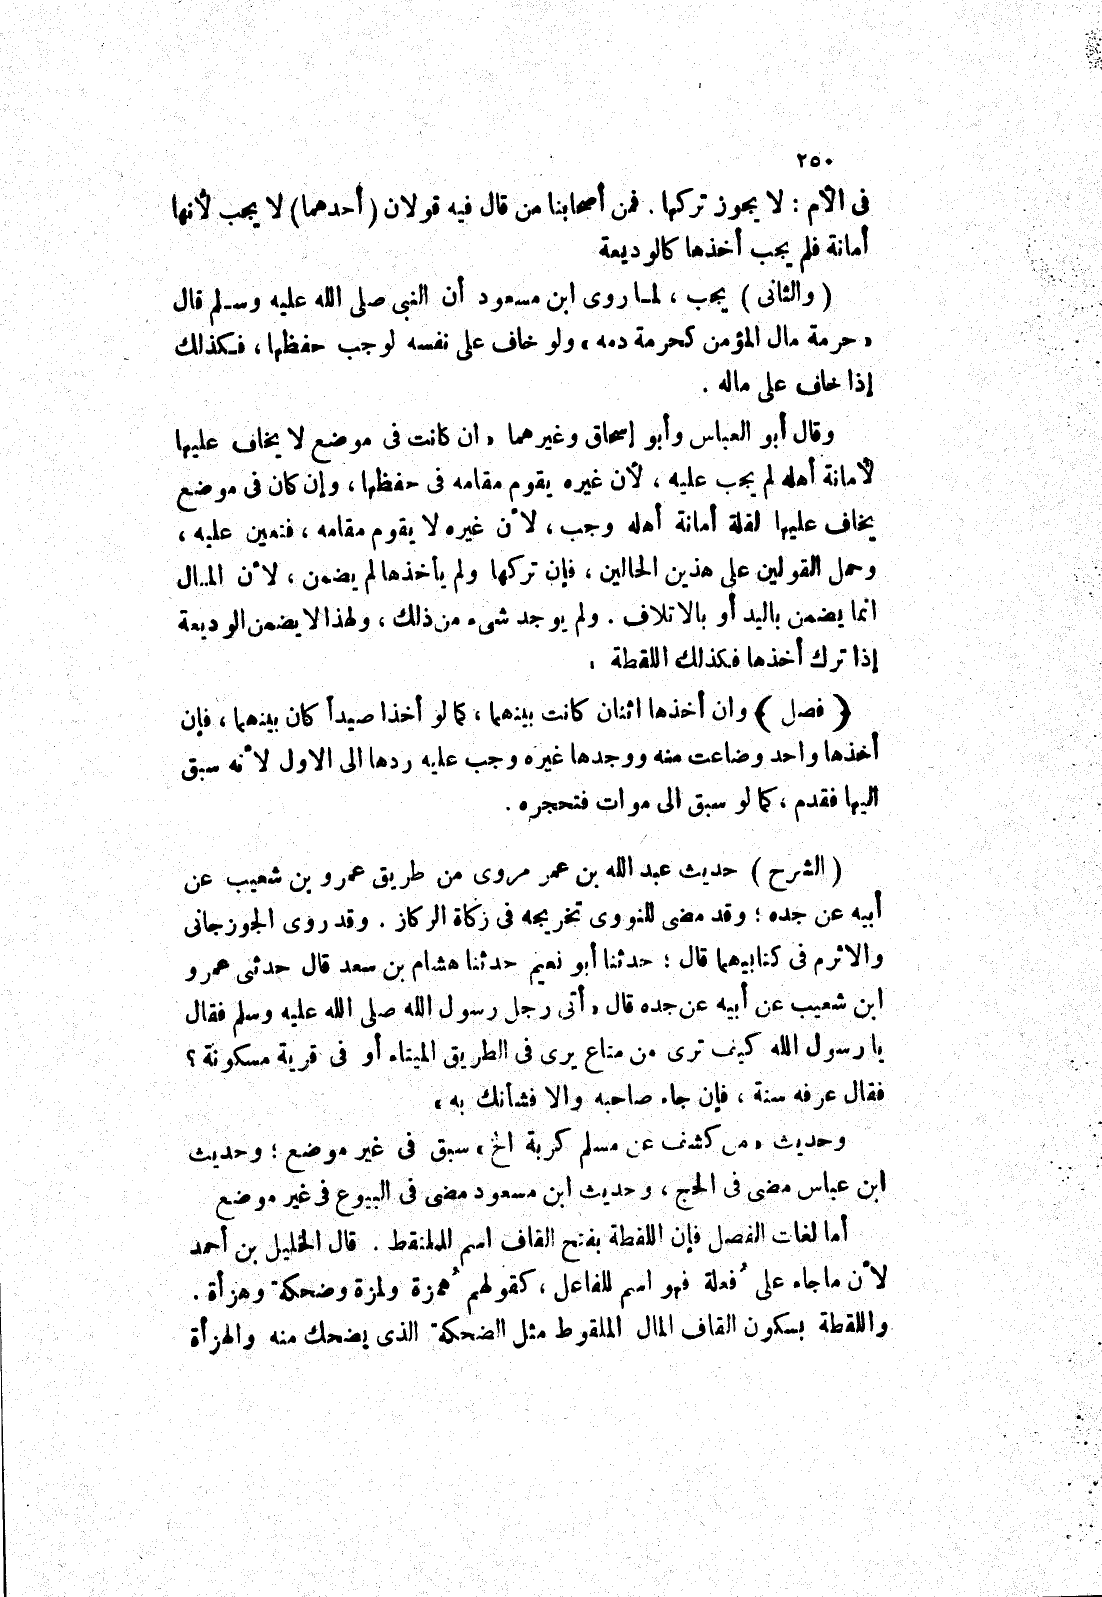 ٢٥٠
فى الأم : لا يجوز تركها . فمن أصحابنا من قال فيه قولان (أحدهما) لا يجب لأنها
أمانة فلم يجب أخذها كالوديعة
( والثانى ) يجب ، لما روى ابن مسعود أن النبى صلى الله عليه وسلم قال
« حرمة مال المؤمن كحرمة دمه » ولو خاف على نفسه لوجب حفظها ، فكذلك
إذا خاف على ماله .
وقال أبو العباس وأبو إسحاق وغيرهما « ان كانت فى موضع لا يخاف عليها
لأمانة أهله لم يجب عليه ، لأن غيره يقوم مقامه فى حفظها ، وإن كان فى موضع
يخاف عليها لقلة أمانة أهله وجب ، لأن غيره لا يقوم مقامه ، فتعين عليه ،
وحمل القولين على هذين الحالين ، فإن تركها ولم يأخذها لم يضمن ، لأن المال
انما يضمن باليد أو بالاتلاف . ولم يوجد شىء من ذلك ، ولهذا لا يضمن الوديعة
إذا ترك أخذها فكذلك اللقطة .
﴿ فصل ﴾ وان أخذها اثنان كانت بينهما ، كما لو أخذا صيداً كان بينهما ، فإن
أخذها واحد وضاعت منه ووجدها غيره وجب عليه ردها الى الاول لأنه سبق
اليها فقدم ، كما لو سبق الى موات فتحجره .
( الشرح ) حديث عبد الله بن عمر مروى من طريق عمرو بن شعيب عن
أبيه عن جده ؛ وقد مضى للنووى تخريجه فى زكاة الركاز . وقد روى الجوزجانى
والاثرم فى كتابيهما قال ؛ حدثنا أبو نعيم حدثنا هشام بن سعد قال حدثنى عمرو
ابن شعيب عن أبيه عن جده قال « أتى رجل رسول الله صلى الله عليه وسلم فقال
يا رسول الله كيف ترى من متاع يرى فى الطريق الميتاء أو فى قرية مسكونة ؟
فقال عرفه سنة ، فإن جاء صاحبه والا فشأنك به »
وحديث « من كشف عن مسلم كربة الخ » سبق فى غير موضع ؛ وحديث
ابن عباس مضى فى الحج ، وحديث ابن مسعود مضى فى البيوع فى غير موضع
أما لغات الفصل فإن اللقطة بفتح القاف اسم للملتقط . قال الخليل بن أحمد
لأن ماجاء على فُعلة فهو اسم للفاعل ، كقولهم هُمزة ولمزة وضحكة وهزأة .
واللقطة بسكون القاف المال الملقوط مثل الضحكة الذى يضحك منه والهزأة